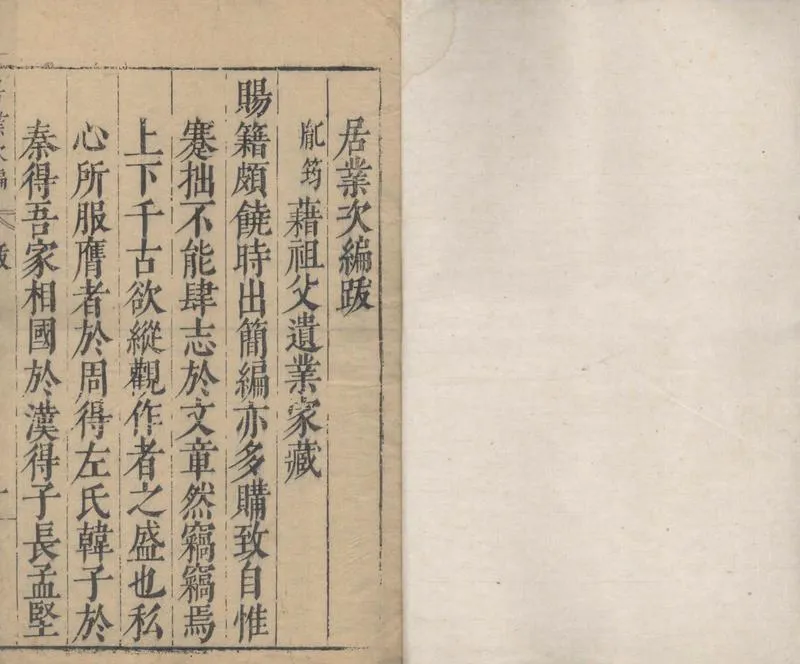 居業次編跋
胤筠藉祖父遺業家藏
賜籍頗饒時出簡編亦多購致自惟
蹇拙不能肆志於文章然竊竊焉
上下千古欲縱觀作者之盛也私
心所服膺者於周得左氏韓子於
秦得吾家相國於漢得子長孟堅
業次編
跋
一